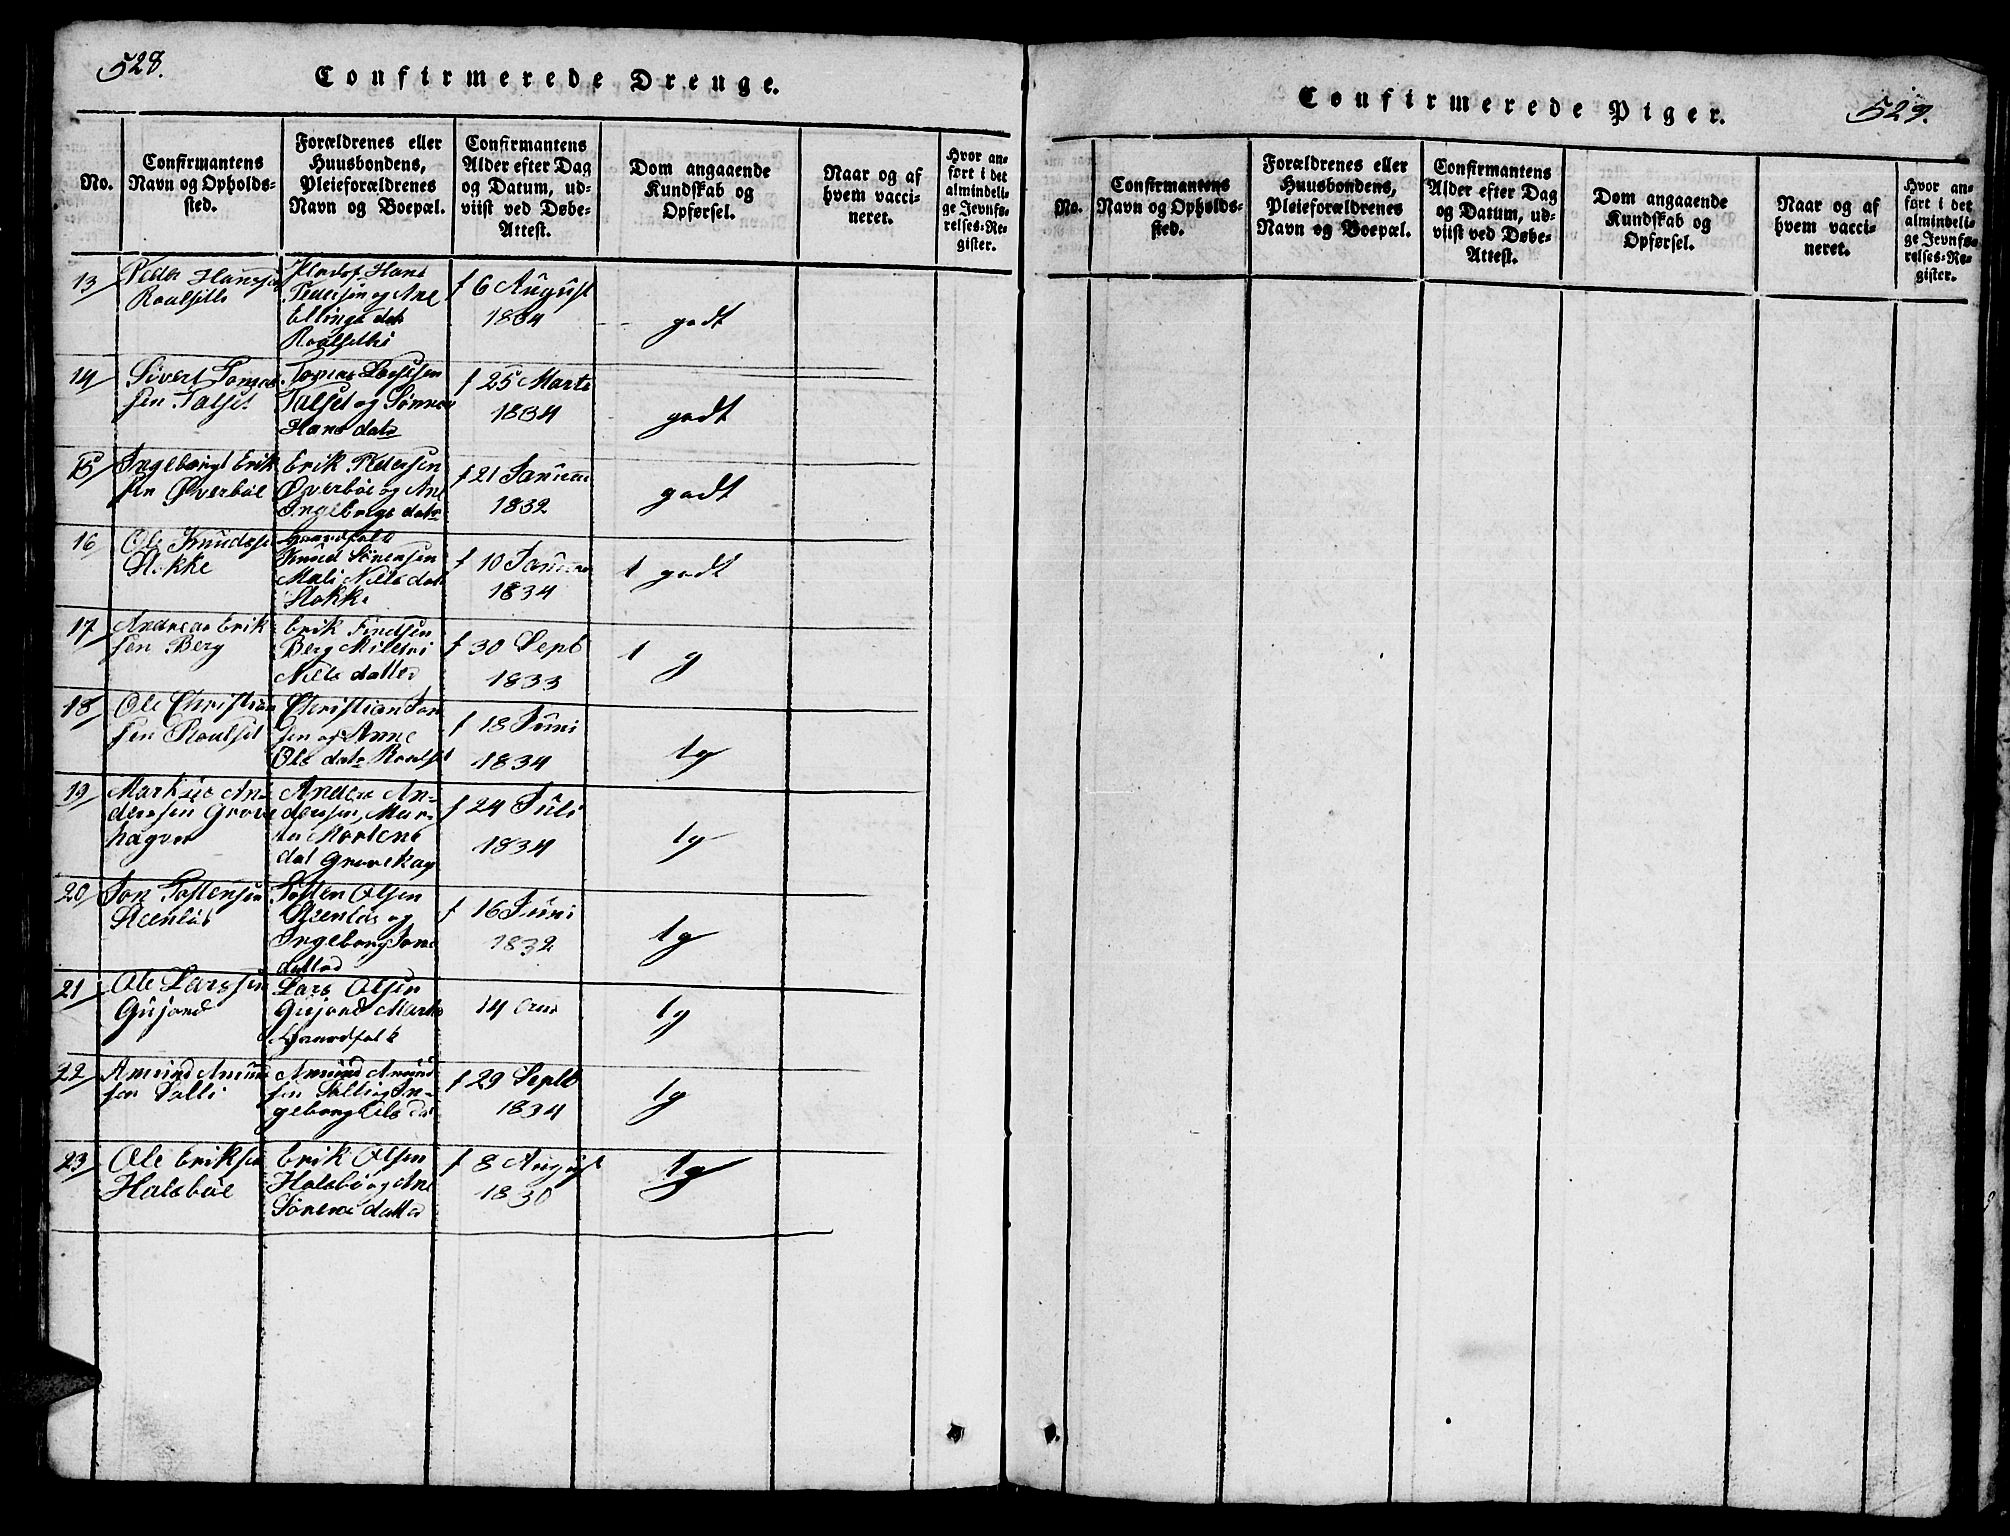 528.
Confirmerede Drenge.
No.
Confirmantens
Navn og Opholds-
sted.
Forældrenes eller
Huusbondens,
Pleieforældrenes
Navn og Boepæl.
Confirmantens
Alder efter Dag
og Datum, ud-
viist ved Døbe-
Attest.
Dom angaaende
Kundskab og
Opførsel.
Naar og af
hvem vacci-
neret.
Hvor an-
ført i det
almindeli-
ge Jevnfø-
relses-Re-
gister.
13
Peder Hanssen
Roalsetli
Hans
Pedersen og Ane
Ellings dat
Roalsetli
f 6 August
1834
godt
14
Sivert Tomas
sen Talset
Tomas
Talset og
Hans datr
f 25 Marts
1834
godt
15
Ingebrigt Erik
sen Øverbøe
Erik Pedersen
Øverbøe og Ane
Ingebrigs datr
f 21 Januar
1832
godt
16
Ole Knudsen
Stokke
Gaardfolk
Knud Sørensen
Mali Nils dat
Stokke
f 10 Januar
1834
1 godt
17
Andreas Erik
sen Berg
Erik Findsen
Berg
Nils datter
f 30 Septb
1833
1 g
18
Ole Christian
sen Roalset
Christian Jon
sen og Anne
Ols datr Roalset
f 18 Juni
1834
1g
19
Markus An-
derssen Grove
hagen
Anders An-
derssen, Mar-
Mortens
dat Grovehag
f 24 Juli
1834
1g
20
Jon Tostensen
Steenløs
Tosten Olsen
Steenløs og
Ingeborg Jons
datter
f 16 Juni
1832
1g
21
Ole Larssen
Gujord
Lars Olsen
Gujord
Gaardfolk
14
1g
22
Amund Amund
sen Solli
Amund Amund
sen Solli og In-
geborg Ols dat
f 29 Septb
1834
1g
23
Ole Eriksen
Halsbøe
Erik Olsen
Halsbø og Ane
Sørens datter
f 8 August
1830
1g
Confirmerede Piger.
529.
No.
Confirmantens
Navn og Opholds-
sted.
Forældrenes eller
Huusbondens,
Pleieforældrenes
Navn og Boepæl.
Confirmantens
Alder efter Dag
og Datum, ud-
viist ved Døbe-
Attest.
Dom angaaende
Kundskab og
Opførsel.
Naar og af
hvem vacci-
neret.
Hvor an-
ført i det
almindeli-
ge Jevnfø-
relses-Re-
gister.